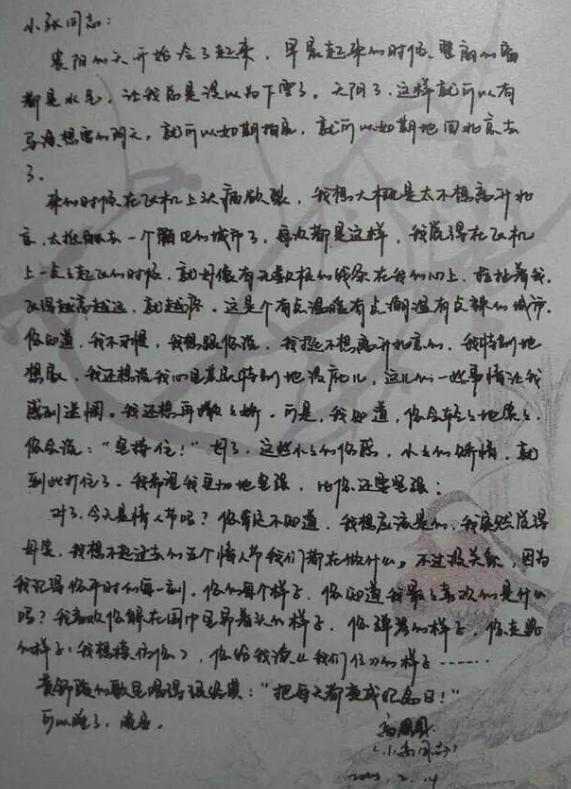 小张同志：
贵阳的天开始冷了起来，早晨起来的时候，整扇的窗
都是水气，让我总是误以为下雪了。天阴了，这样就可以有
雪，就可以如期拍完，就可以如期地回北京去
了。
来的时候在飞机上头痛欲裂，我想大概是太不想离开北
京，太抵触去一个陌生的城市了，每次都是这样，我觉得在飞机
上一点点起飞的时候，就好像有无数根的线系在我的心上，拉扯着我，
飞得越高越远，就越疼。这是个有点温暖有点潮湿有点辣的城市，
你知道，我不习惯，我想跟你说，我挺不想离开北京的，我特别地
想家，我还想说我心里其实特别地没底儿，这儿的一些事情让我
感到迷惘。我还想再撒撒娇。可是，我知道，你会轻轻地笑笑，
你会说："坚持住！"好了，这些小小的伤感，小小的矫情，就
到此打住了。我希望我更加地坚强，比你还要坚强；
对了，今天是情人节吗？你肯定不知道，我想应该是的，我突然觉得
好笑，我想不起过去的五个情人节我们都在做什么。不过没关系，因为
我记得你平时的每一刻，你的每个样子，你知道我最最喜欢的是什么
吗？我喜欢你躲在围巾里昂着头的样子，你弹琴的样子，你走路
的样子（我想模仿你），你给我读《我们仨》的样子……
黄舒骏的歌里唱得很好："把每天都变成纪念日！"
可以睡了，晚安。
高圆圆
（小高同志）
2.14